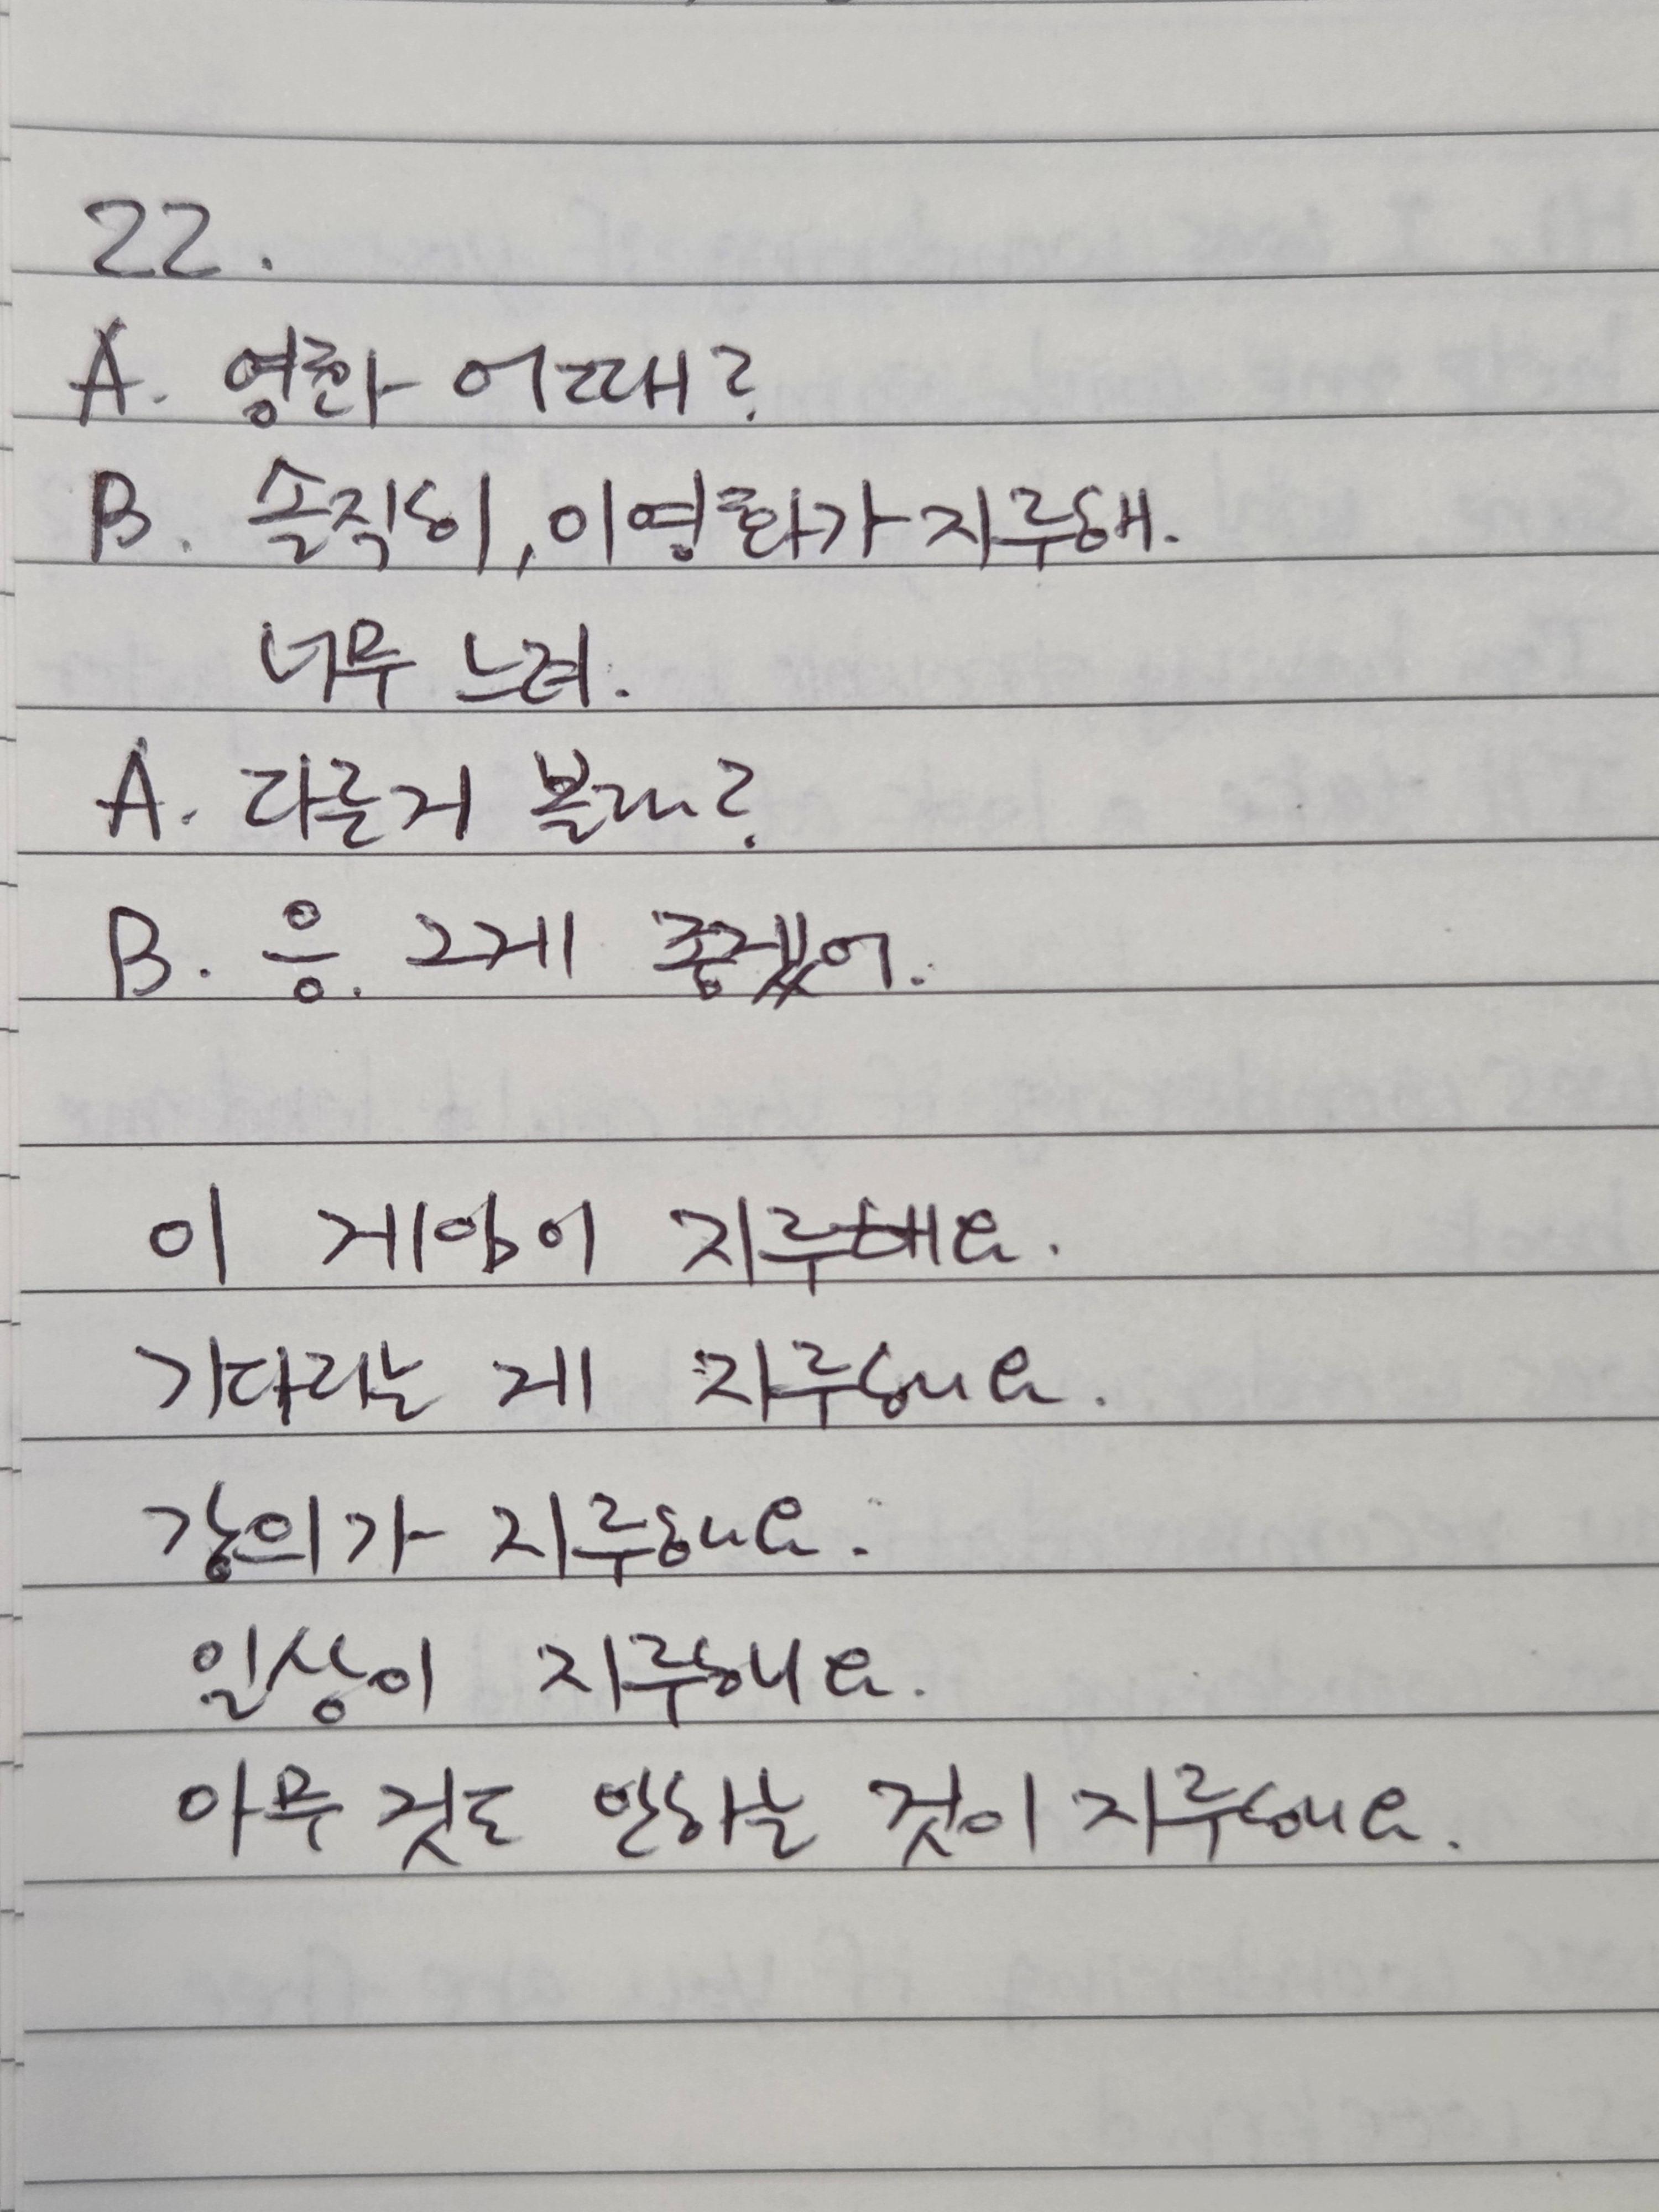 22.
A. 영화 어때?
B. 솔직히, 이 영화가 지루해.
너무 느려.
A. 다른거 볼래?
B. 응. 그게 좋겠어.
이 게임이 지루해요.
기다리는 게 지루해요.
강의가 지루해요.
일상이 지루해요.
아무 것도 안하는 것이 지루해요.